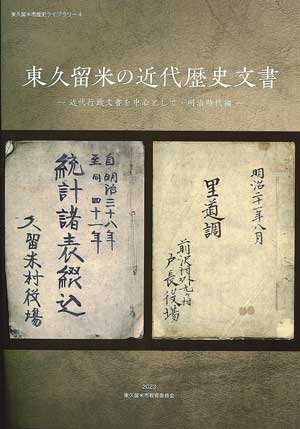 東久留米市歴史ライブラリー4
東久留米の近代歴史文書
― 近代行政文書を中心として・明治時代編 ―
自明治三十八年
至同 四十一年
統計諸表綴込
久留米村役場
明治二十一年八月
里道調
前沢村外九ヶ村
戸長役場
2023
東久留米市教育委員会